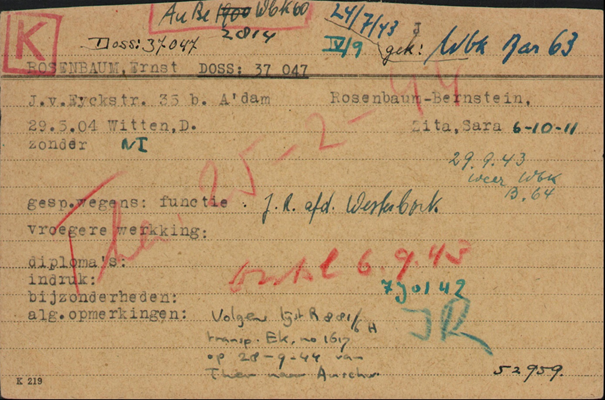 K
AuBe 1900 Wbk 60
2814
24/7/43
IV/9
gek: Wbk Bar 63
Doss: 37.047
ROSENBAUM, Ernst DOSS: 37 047
J.v.Eyckstr. 35 b. A'dam Rosenbaum-Bernstein,
29.5.04 Witten,D. Zita,Sara 6-10-11
zonder NI
29.9.43
weer Wbk
B.64
Ther. 25-2-44
gesp.wegens: functie . J.R. afd. Westerbork
vroegere werkking:
diploma's:
6.9.43
indruk:
bijzonderheden:
alg.opmerkingen: Volgens lijst R 881/
JR
transp. Ek. no 1617
op 28-9-44 van
Ther naar Auschw
52959.
K 219